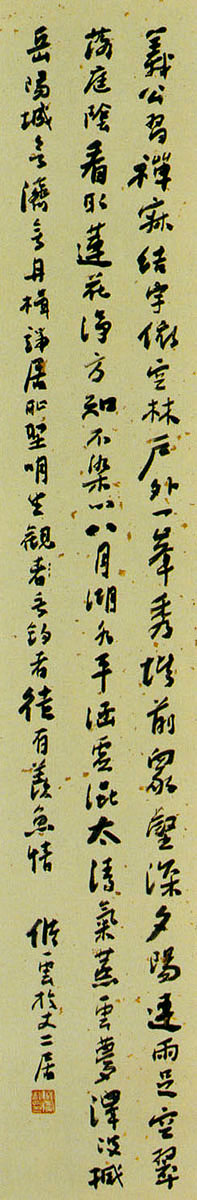 義公習禪寂結宇依空林戶外一峯秀階前眾壑深夕陽連雨足空翠
落庭陰看取蓮花淨方知不染心八月湖水平涵虛混太清氣蒸雲夢澤波撼
岳陽城欲濟無舟楫端居恥聖明坐觀垂釣者徒有羨魚情
雲於丈二居